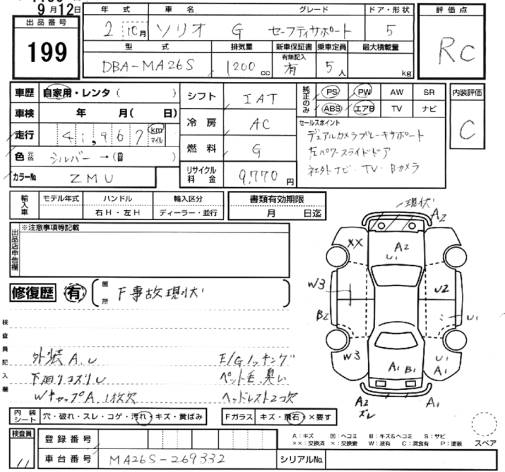 9月12日
出品番号
199
年式 車名 グレード ドア・形状
2 10月 ソリオ G セーフティサポート 5
型式 排気量 新車保証書 乗車定員 最大積載量
DBA-MA26S 1200cc 有無記入 有 5人 kg
評価点
RC
内装評価
C
車歴 自家用・レンタ ( )
車検 年 月 ( 日)
走行 41,967 km マイル
色 シルバー→( )
カラーNo ZMU
シフト IAT
冷房 AC
燃料 G
リサイクル料金 9,770円
純正のみ PS PW AW SR
ABS エアB TV ナビ
セールスポイント
デュアルカメラブレーキサポート
左パワースライドドア
社外ナビ TV Bカメラ
輸入車 モデル年式 ハンドル 輸入区分 書類有効期限
右H・左H ディーラー・並行 月 日迄
出品店申告欄 ※注意事項等記載
修復歴 有 箇所 F事故現状
検査員記入欄
外装A.U E/Gノッキング
下回りコスリU ペット毛、臭い
WキャップA、1枚欠 ヘッドレスト2コ欠
現状
A2
XX A2
U1
W3 U2
B2 U1
W3 A1 A1 B1 U1
A1
A2 A1
ズレ
内装シート 穴・破れ・スレ・コゲ・汚れ・キズ・黄ばみ Fガラス キズ・飛石・×要す
A:キズ 凹:ヘコミ B:キズ&ヘコミ S:サビ
××:交換済 ×:交換要 W:波有 C:腐食有 P:塗装
スペア
検査員
登録番号
車台番号 MA26S-269332 シリアルNo.